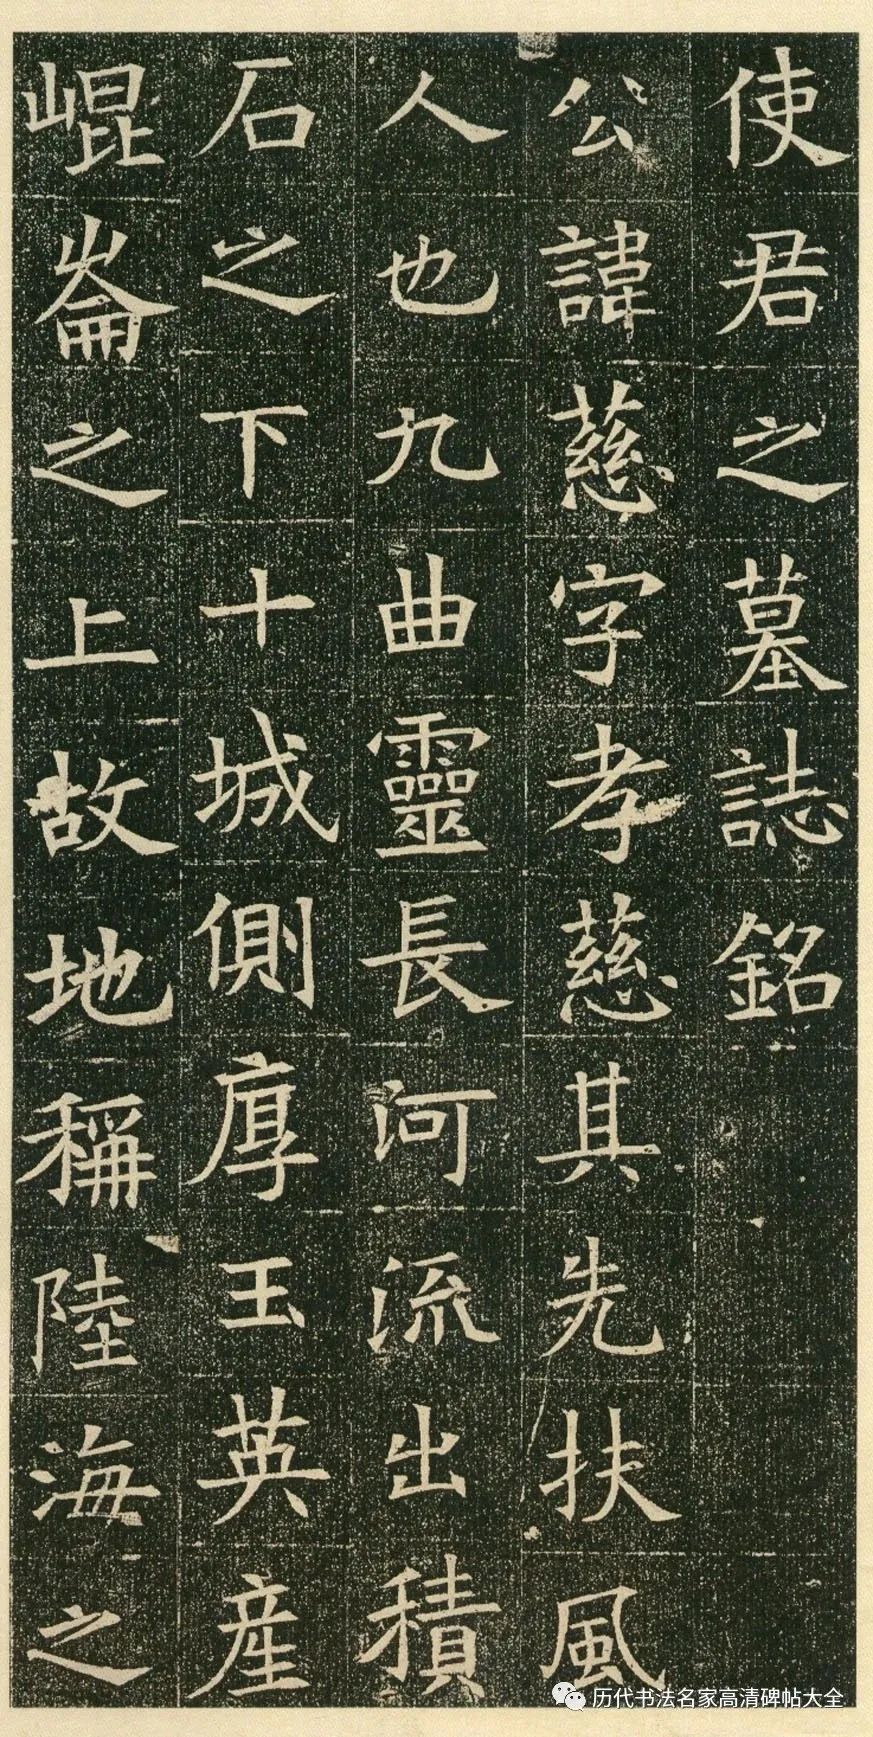 使君之墓誌銘
公諱慈字孝慈其先扶風
人也九曲靈長河流出積
石之下十城側厚玉英産
崐崙之上故地稱陸海之
历代书法名家高清碑帖大全